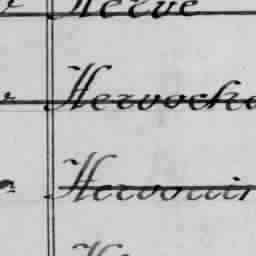 Hervé
Hervoche
Hervouin